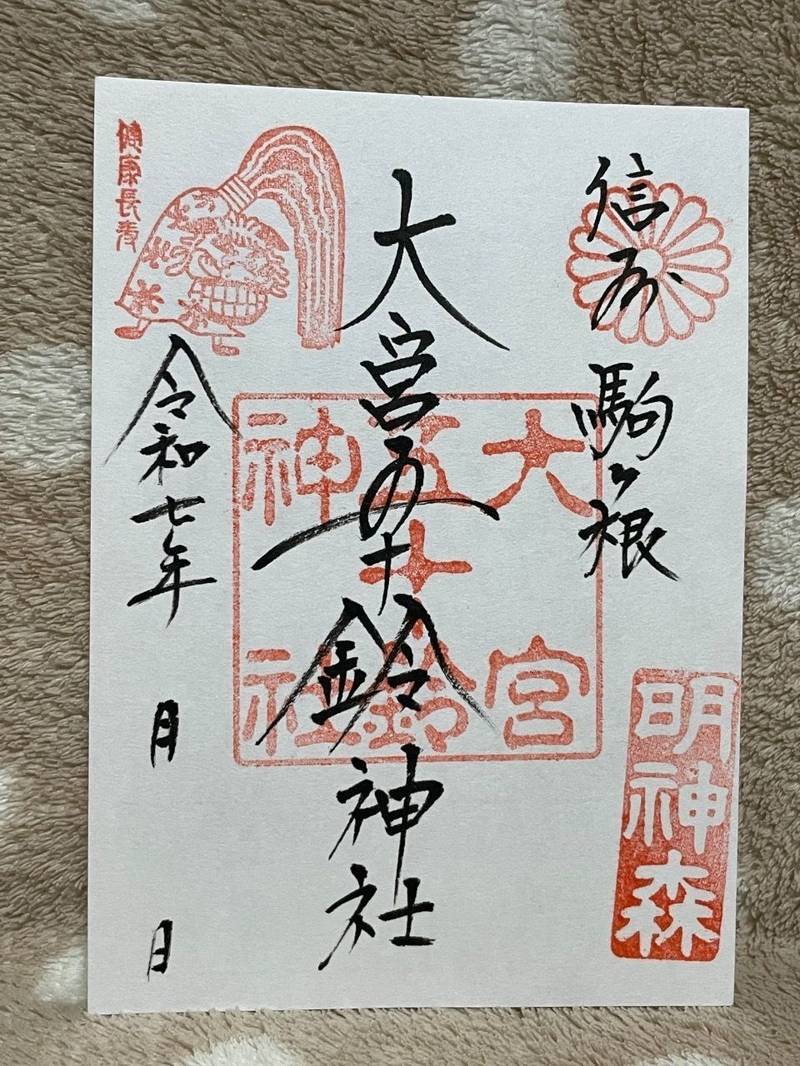 信州 駒ヶ根
明神森
大宮五十鈴神社
大宮
五十鈴
神社
健康長寿
令和七年 月 日